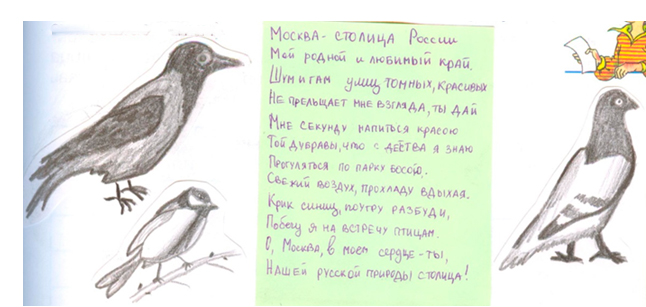 Москва - столица России
Мой родной и любимый край.
Шум и гам улиц томных, красивых
Не прельщает мне взгляда, ты дай
Мне секунду напиться красою
Той дубравы, что с детства я знаю
Прогуляться по парку босою,
Свежий воздух, прохладу вдыхая.
Крик синиц, поутру разбуди,
Побегу я на встречу птицам.
О, Москва, в моем сердце - ты,
Нашей русской природы столица!